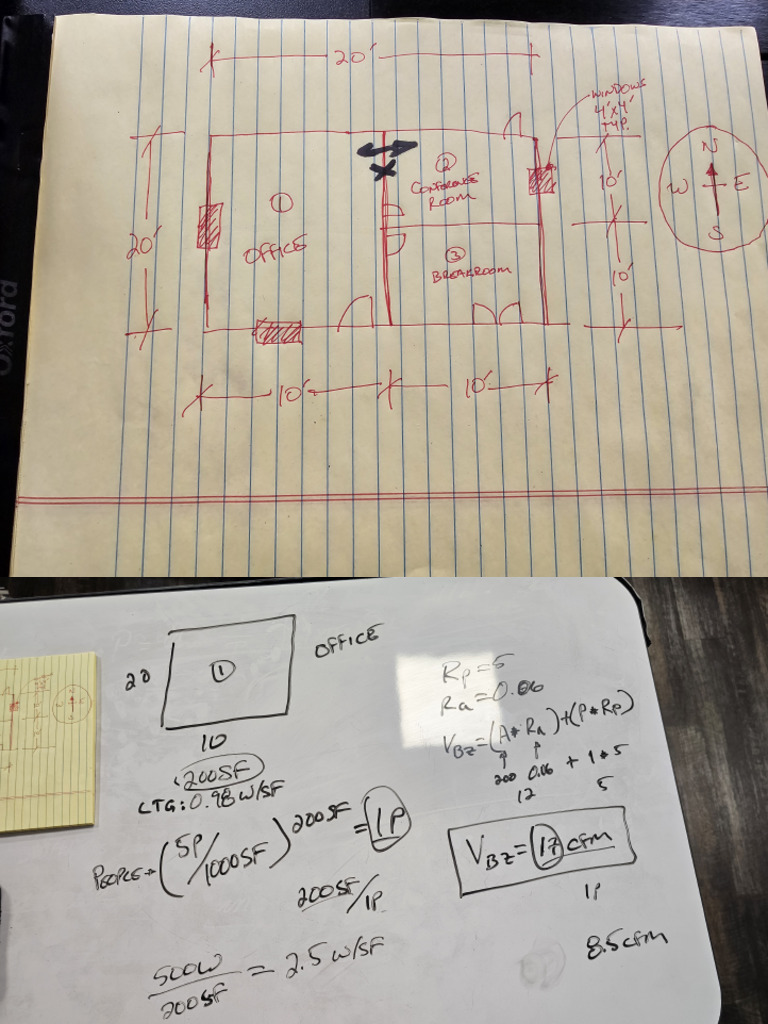 20'
WINDOWS
4'x4'
TYP.
N
W E
S
①
OFFICE
②
CONFERENCE
ROOM
③
BREAKROOM
20'
10'
10'
10' 10'
Oxford
20
①
OFFICE
10
200SF
LTG: 0.98 W/SF
PEOPLE → (5P/1000SF) 200SF = 1P
200SF/1P
500W/200SF = 2.5 W/SF
Rp = 5
Ra = 0.06
VBZ = (A * Ra) + (P * Rp)
200 0.06 + 1 * 5
12 5
VBZ = 17 CFM
1P
8.5 CFM